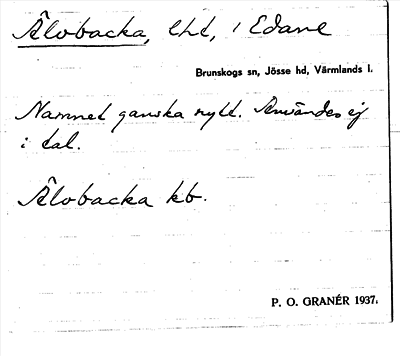 Älvbacka, lht, i Edane
Brunskogs sn, Jösse hd, Värmlands l.
Namnet ganska nytt. Användes ej
i tal.
Älvbacka kb.
P. O. GRANÉR 1937.